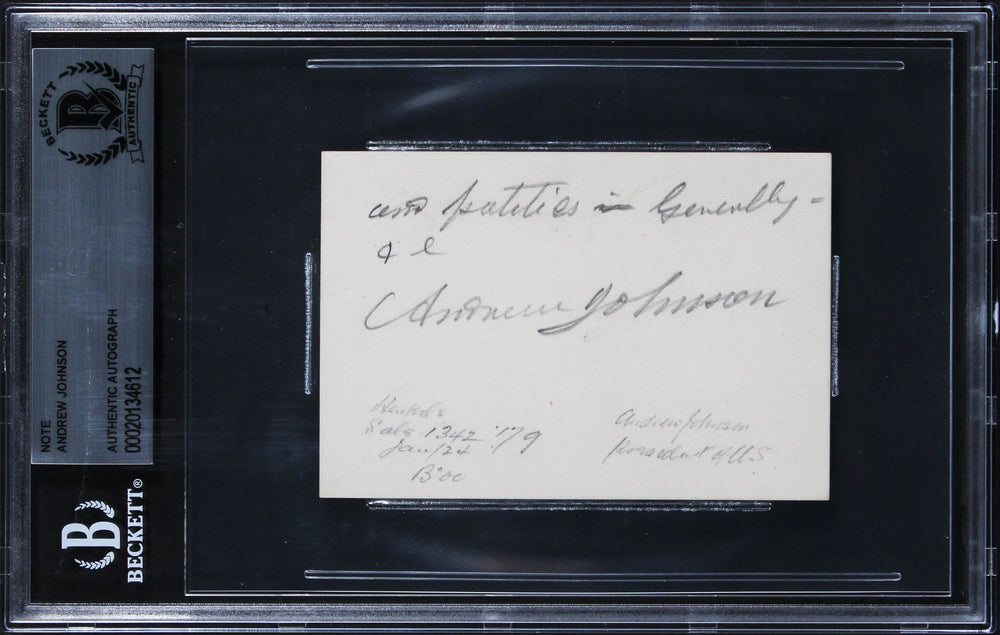 BECKETT
AUTHENTIC
B
NOTE
ANDREW JOHNSON
AUTHENTIC AUTOGRAPH
00020134612
B
BECKETT®
and politics in Generally =
& c
Andrew Johnson
Henkels
Sale 1342
Jan/24
Andrew Johnson
President of U.S.